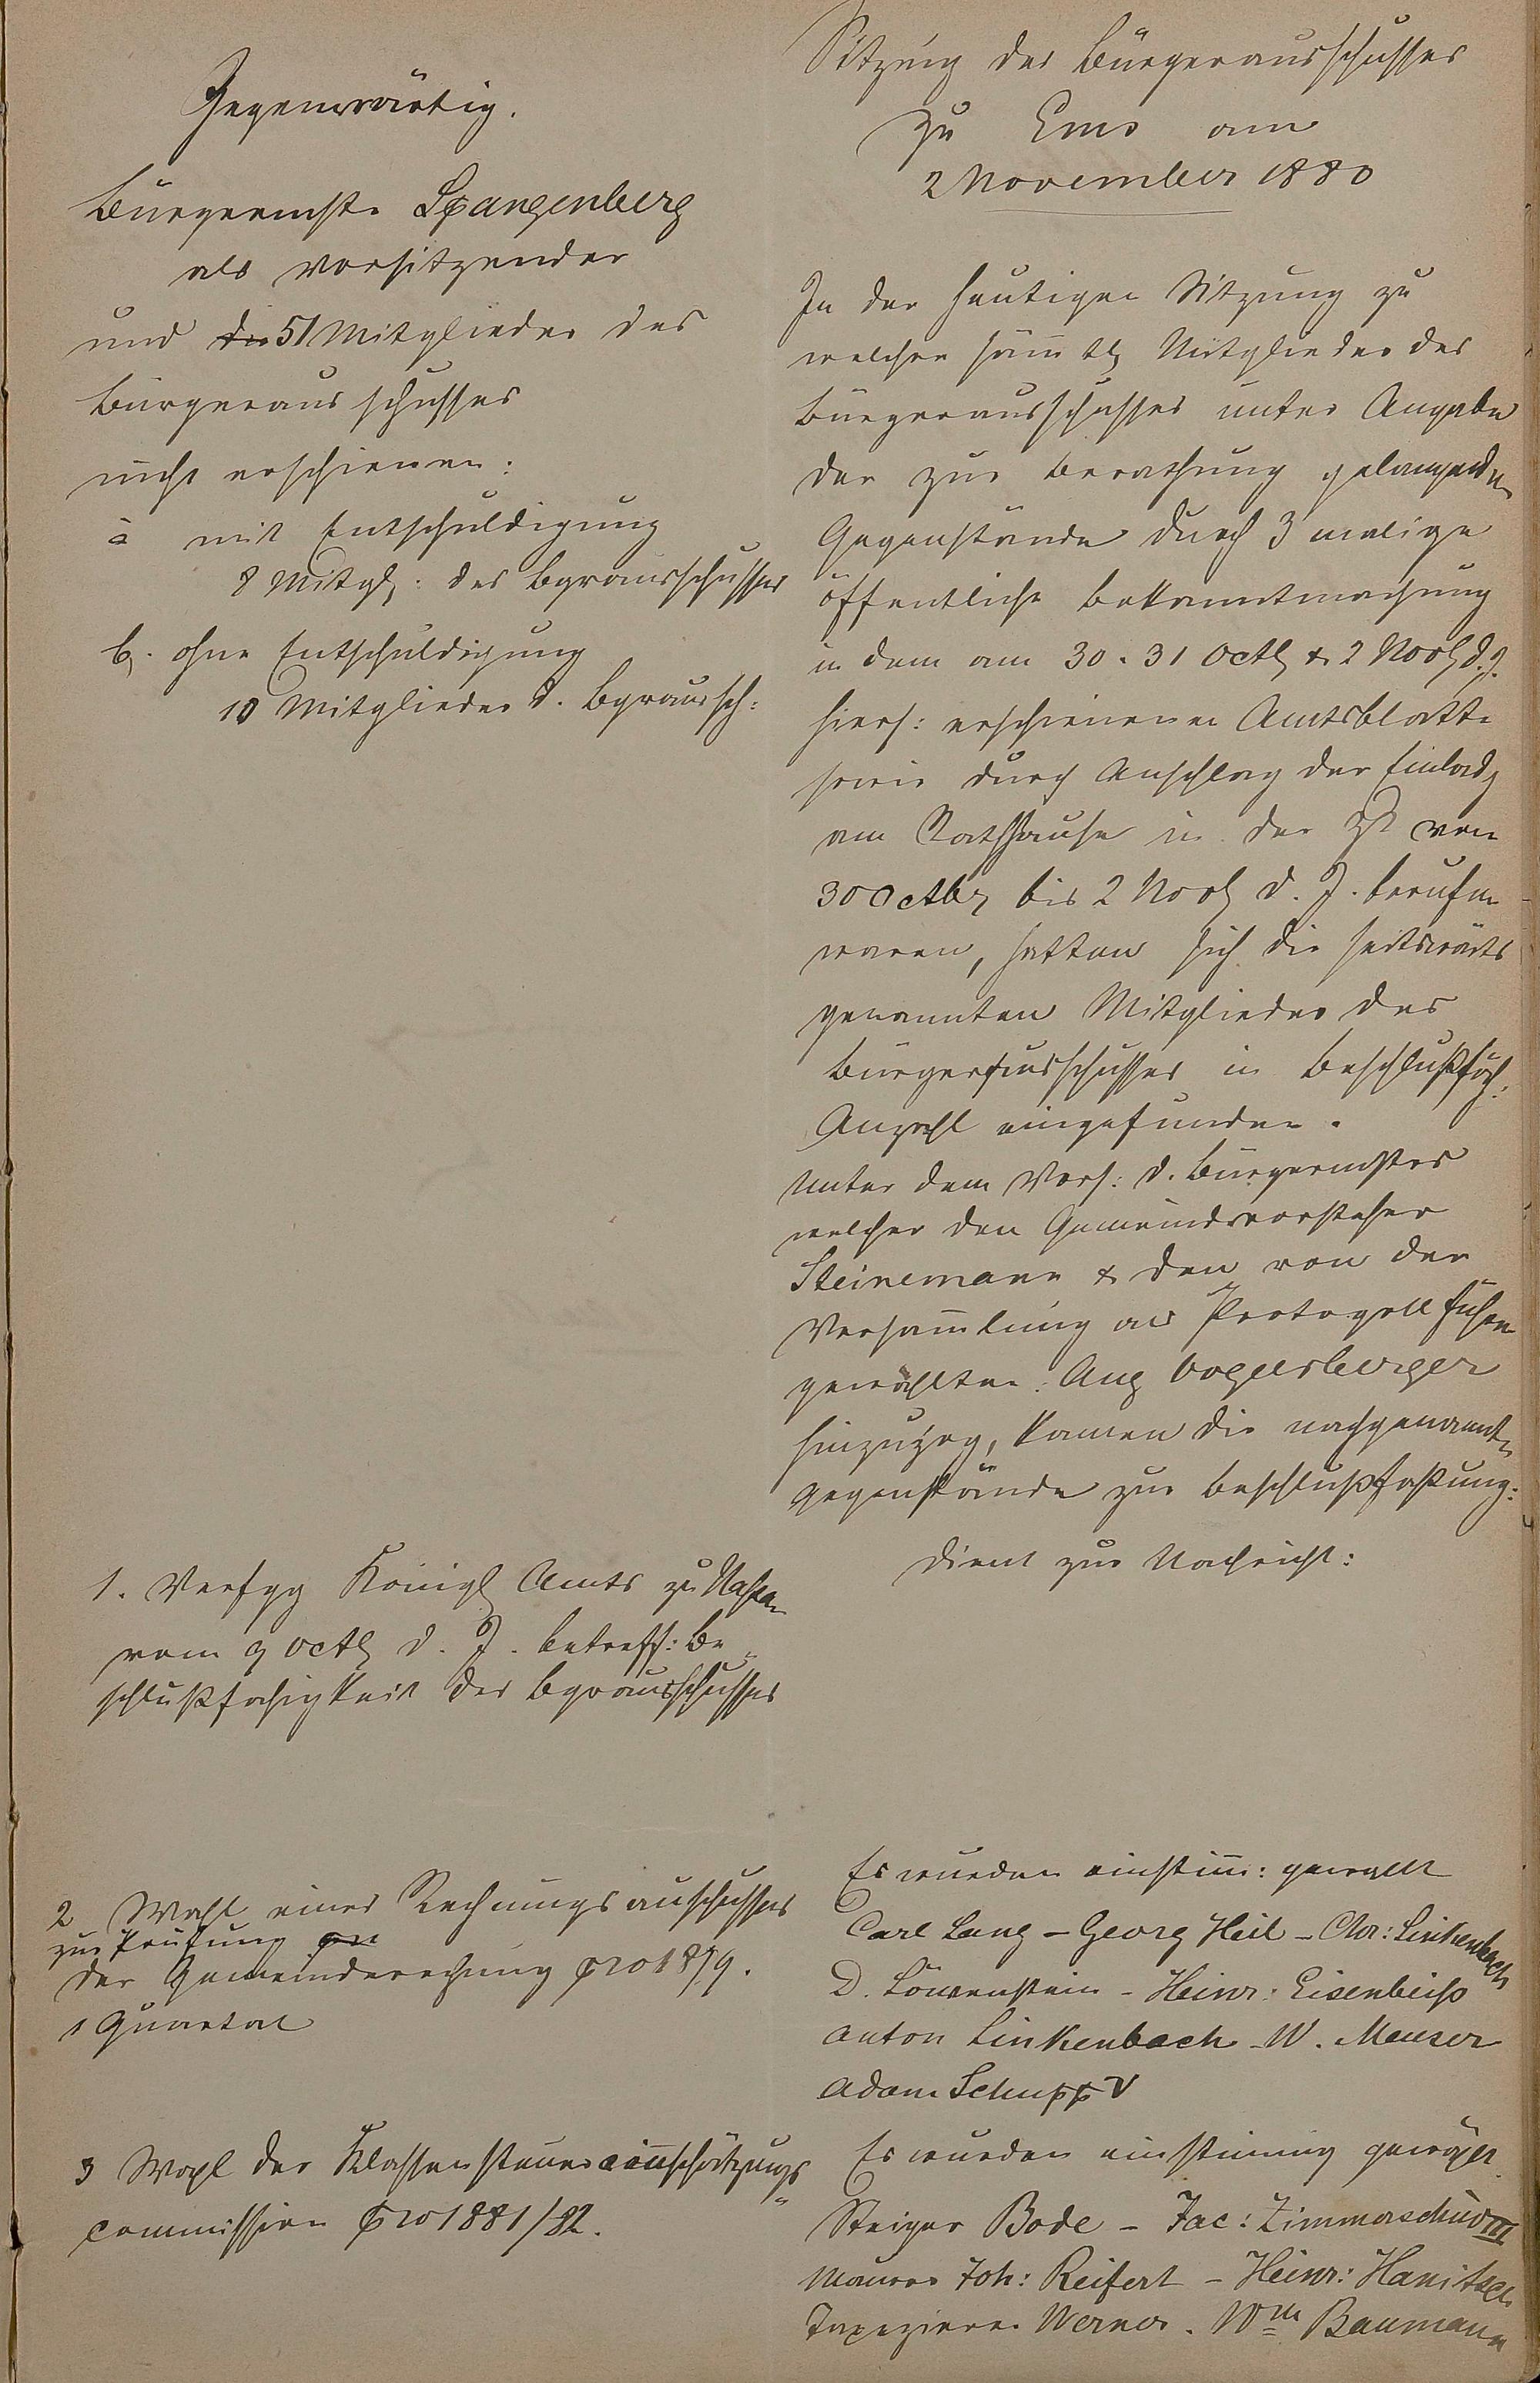 Gegenwärtig.
Bürgermstr Spangenberg
als Vorsitzender
und die 51 Mitglieder des
Bürgerausschusses
nicht erschienen:
a mit Entschuldigung
8 Mitgl: des Bgrausschusses
b. ohne Entschuldigung
10 Mitglieder d. Bgraussch:
Sitzung des Bürgerausschusses
zu Ems am
2 November 1880
In der heutigen Sitzung zu
welcher säm̄tl Mitglieder des
Bürgerausschusses unter Angabe
der zur Berathung gelangenden
Gegenstände durch 3 malige
öffentliche Bekanntmachung
in dem am 30. 31 Octb & 2 Novb d. J.
hiers: erschienenen Amtsblatte
sowie durch Anschlag der Einladg
am Rathhause in der Zt von
30 Octbr bis 2 Novb d. J. berufen
waren, hatten sich die seitwärts
genannten Mitglieder des
Bürgerausschusses in beschlußfäh:
Anzahl eingefunden.
Unter dem Vors: d. Bürgermstrs
welcher den Gemeindevorsteher
Steinemann & den von der
Versam̄lung als Protogollführer
gewählten Aug Vogelsberger
hinzuzog, kamen die nachgenannten
Gegenstände zur Beschlußfaßung:
1. Verfgg Königl Amts zu Nassau
vom 9 Octb d. J. betreff: Be-
schlußfähigkeit des Bgrausschusses
Dient zur Nachricht:
2 Wahl eines Rechnungsausschusses
zur Prüfung
der Gemeinderechnung pro 1879.
1 Quartal
Es wurden einstim̄: gewählt
Carl Lang – Georg Heil – Chr: Linkenbach
D. Löwenstein – Heinr: Eisenbeiß
Anton Linkenbach – W. Meuser
Adam Schupp V
3 Wahl der Klassensteuereinschätzungs-
commission pro 1881/82.
Es wurden einstimmig gewählt
Steiger Bode – Jac: Zimmerschied III
Maurer Joh: Reifert – Heinr: Hanitsch
Tapezierer Werner. Wm Baumann